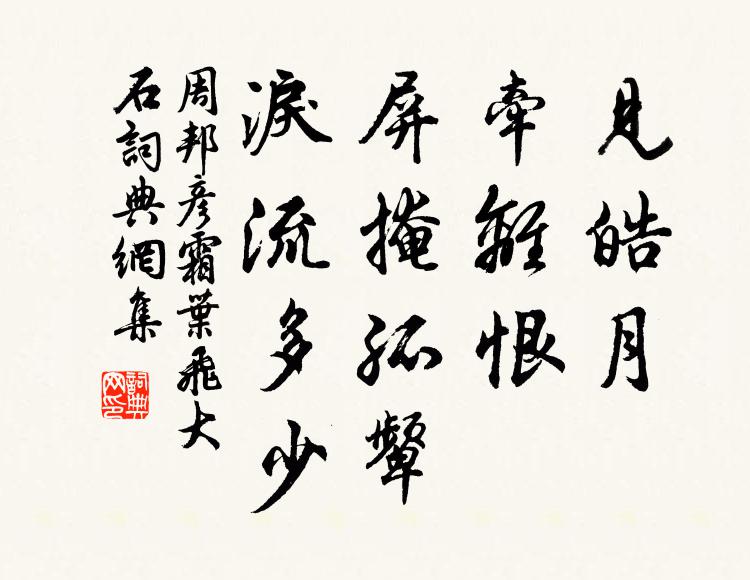 見皓月
牽離恨
屏掩孤顰
淚流多少
周邦彥霜葉飛大
石詞典網集
詞典網印